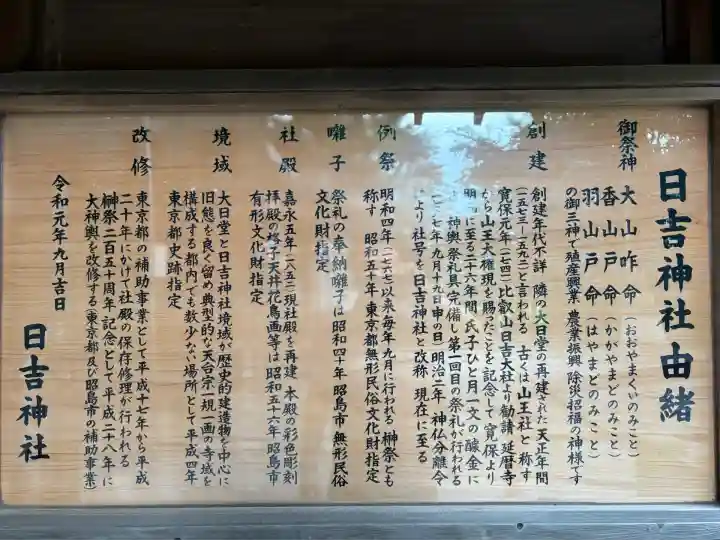 日吉神社由緒
御祭神
大山咋命(おおやまくいのみこと)
香山戸命(かがやまどのみこと)
羽山戸命(はやまどのみこと)
の御三神で殖産興業 農業振興 除災招福の神様です
創建
創建年代不詳 隣の大日堂の再建された天正年間
(一五七三-一五九二)と言われる 古くは山王社と称す
寛保元年(一七四一)比叡山日吉大社より勧請 延暦寺
から山王大権現を賜ったことを記念して寛保より
明和に至る二十六年間 氏子ひと月一文の醵金に
神輿 祭礼具が完備し第一回目の祭礼が行われる
(一七六七年九月十九日申の日)明治二年 神仏分離令
により社号を日吉神社と改称 現在に至る
例祭
明和四年(一七六七)以来毎年九月に行われる 榊祭とも
称す 昭和五十年 東京都無形民俗文化財指定
囃子
祭礼の奉納囃子は昭和四十年 昭島市 無形民俗
文化財指定
社殿
嘉永五年(一八五二)現社殿を再建 本殿の彩色彫刻
拝殿の格子天井花鳥画等は昭和五十六年 昭島市
有形文化財指定
境域
大日堂と日吉神社境域が歴史的建造物を中心に
旧態を良く留め典型的な天台宗一規一画の寺域を
構成する都内でも数少ない場所として平成四年
東京都史跡指定
改修
東京都の補助事業として平成十七年から平成
二十年にかけて社殿の保存修理が行われる
榊祭二百五十周年記念として平成二十八年に
大神輿を改修する(東京都及び昭島市の補助事業)
令和元年九月吉日
日吉神社